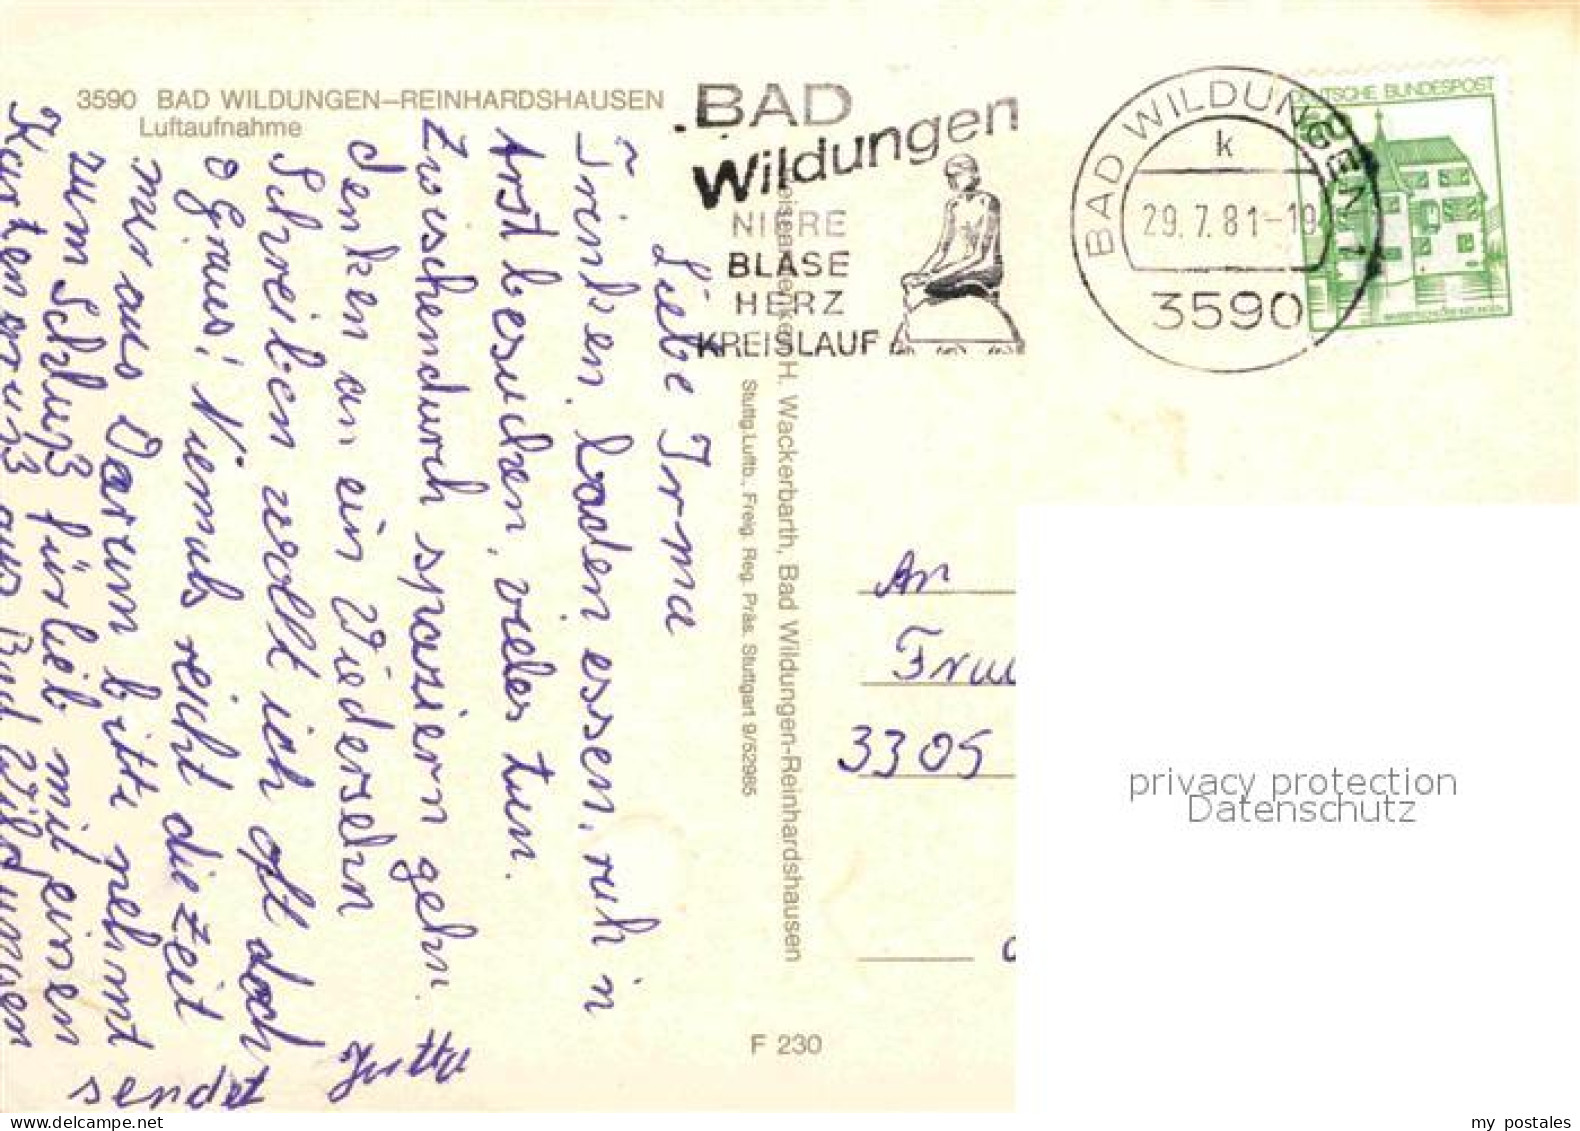 3590 BAD WILDUNGEN–REINHARDSHAUSEN
Luftaufnahme
BAD
Wildungen
NIERE
BLASE
HERZ
KREISLAUF
BAD WILDUNGEN 1
k
29.7.81-19
3590
DEUTSCHE BUNDESPOST
Liebe Irma
Trinken, baden essen, ruh'n
Arst besuchen, vieles tun.
Zwischendurch spaziern gehn.
denken an ein Wiedersehn
Schreiben wollt ich oft doch
o Graus! Niemals reicht die Zeit
mir aus Darum bitte nehmt
zum Schluß fürlieb mit einen
Kartengruß aus Bad Wildungen
sendet
Jutta
H. Wackerbarth, Bad Wildungen-Reinhardshausen
Stuttg.Luftb., Freig. Reg. Präs. Stuttgart 9/52985
An
Frau
3305
F 230
privacy protection
Datenschutz
my postales